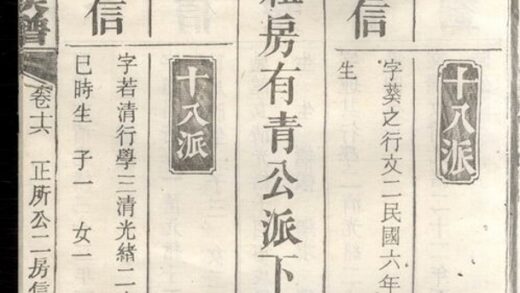 信
十八派
字葵之行文二民國六年
生
房有青公派下
信
十八派
字若清行學三清光緒二
巳時生 子一 女一
譜
卷十六 正所公二房信